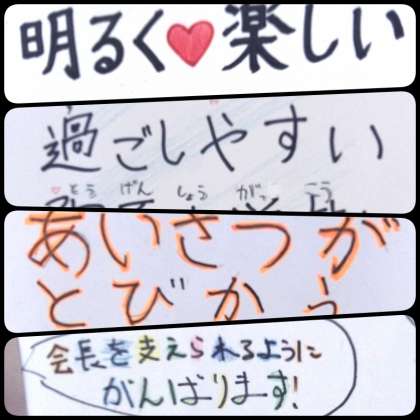 明るく♥楽しい
過ごしやすい
とう げん しょう がっ こう
あいさつが
とびかう
会長を支えられるように
がんばります!